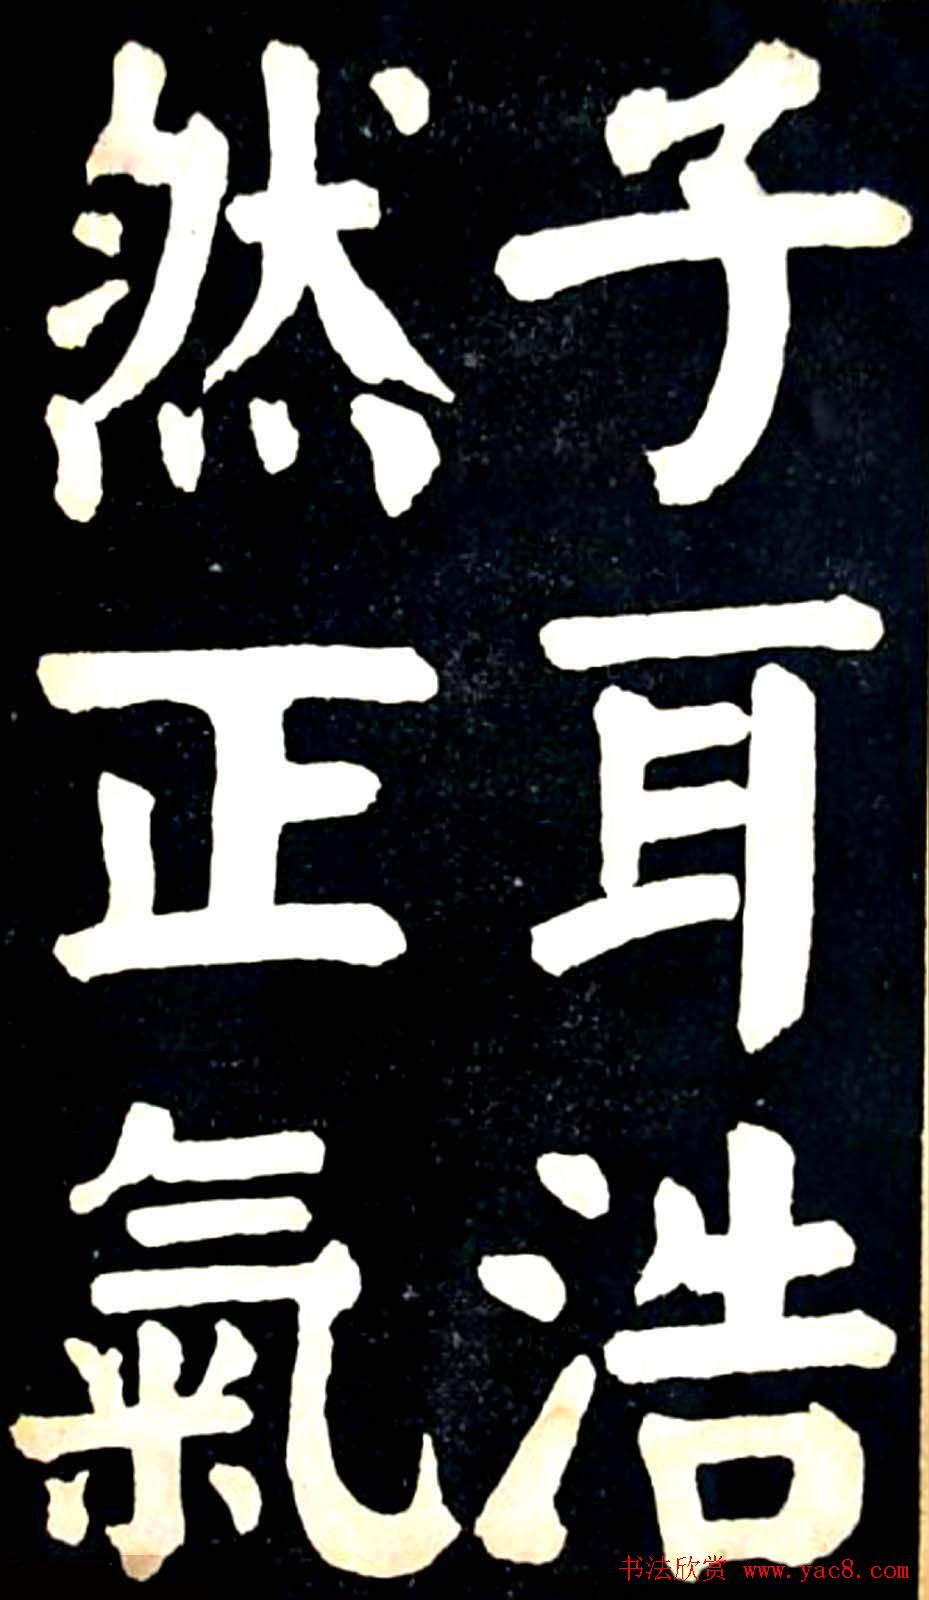 子耳浩
然正氣
书法欣赏 www.yac8.com